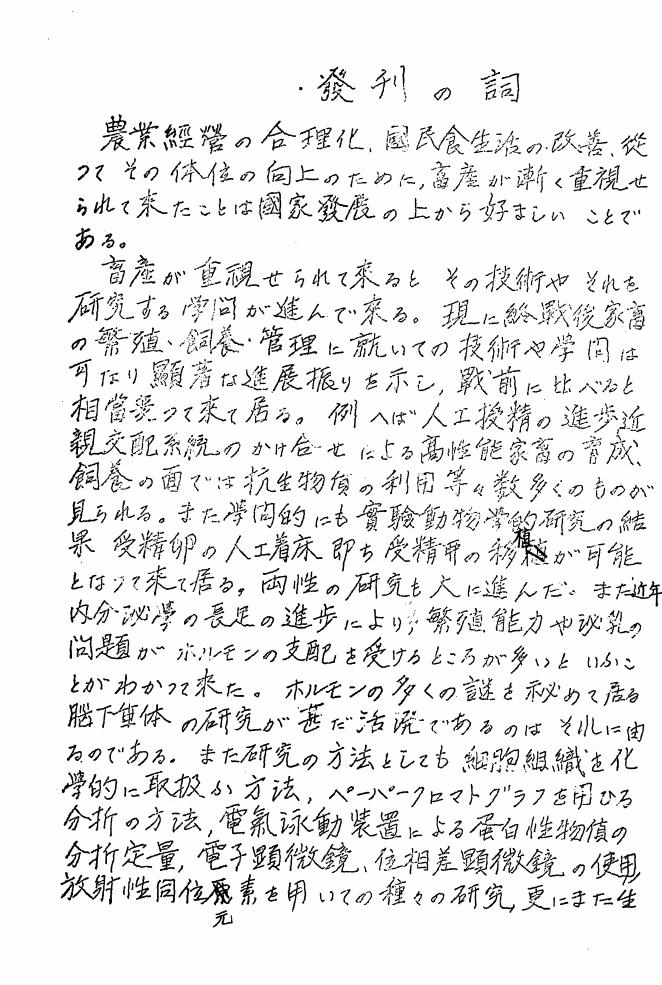 發刊の詞
農業經營の合理化、國民食生活の改善、從
つてその体位の向上のために、畜產が漸く重視せ
られて来たことは國家發展の上から好ましいことで
ある。
畜產が重視せられて来るとその技術やそれを
研究する学問が進んで来る。現に終戰後家畜
の繁殖・飼養・管理に就いての技術や学問は
可なり顯著な進展振りを示し、戰前に比べると
相當変つて来て居る。例へば人工授精の進歩近
親交配系統のかけ合せによる高性能家畜の育成、
飼養の面では抗生物質の利用等々数多くのものが
見られる。また学問的にも實驗動物学的研究の結
果受精卵の人工着床即ち受精卵の移植が可能
となつて来て居る。両性の研究も大に進んだ。また近年
内分泌學の長足の進歩により、繁殖能力や泌乳の
問題がホルモンの支配を受けるところが多いといふこ
とがわかつて来た。ホルモンの多くの謎を秘めて居る
腦下垂体の研究が甚だ活溌であるのはそれに由
るのである。また研究の方法としても細胞組織を化
学的に取扱ふ方法、ペーパークロマトグラフを用ひる
分析の方法、電氣泳動裝置による蛋白性物質の
分析定量、電子顕微鏡、位相差顕微鏡の使用、
放射性同位元素を用いての種々の研究、更にまた生